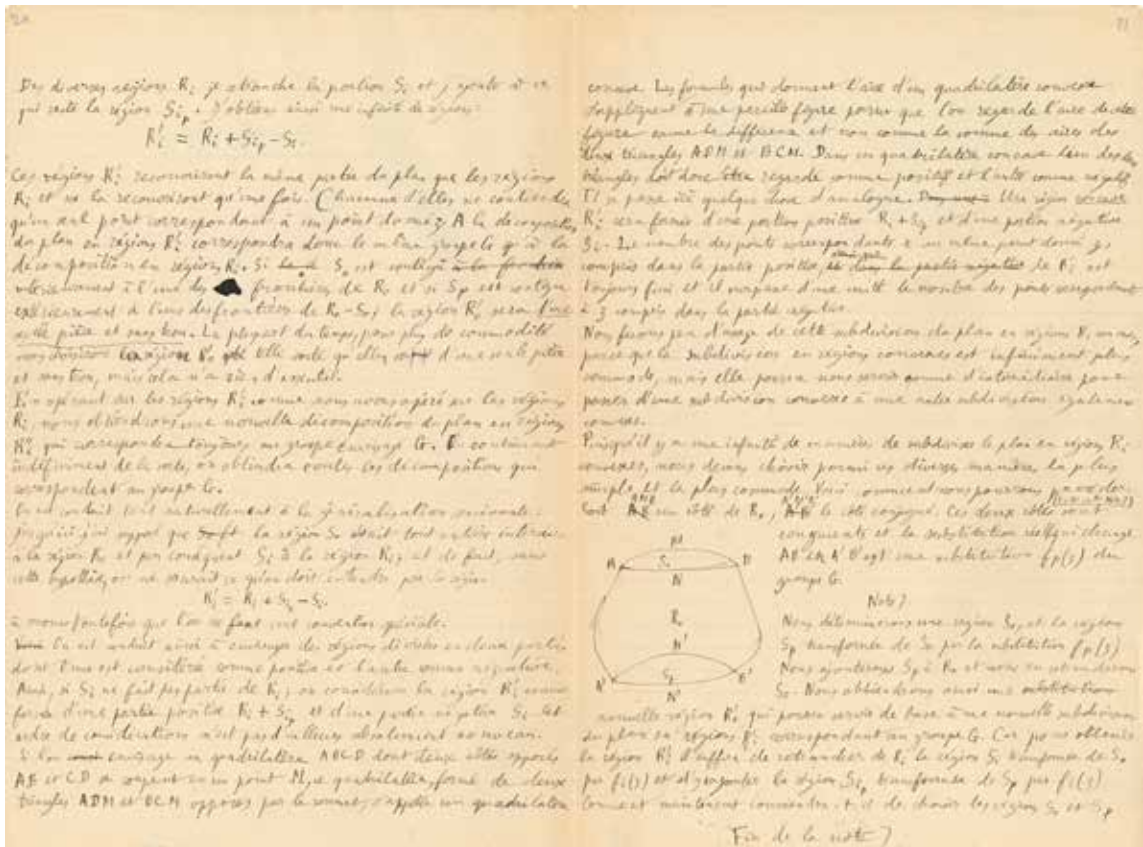 20
Des diverses régions Ri je retranche la portion Si et j'ajoute à ce
qui reste la région Sip. J'obtiens ainsi une infinité de régions:
R'i = Ri + Sip - Si.
Ces régions R'i recouvriront la même partie du plan que les régions
Ri et ne la recouvriront qu'une fois. Chacune d'elles ne contiendra
qu'un seul point correspondant à un point donné z. A la décomposition
du plan en régions R'i correspondra donc le même groupe G qu'à la
décomposition en régions Ri. Si S0 est contigu à la frontière
intérieurement à l'une des frontières de R0 et si Sp est contigu
extérieurement à l'une des frontières de R0-S0, la région R'0 sera d'une
seule pièce et sans trou. La plupart du temps, pour plus de commodité
nous choisirons la région R'0 de telle sorte qu'elle soit d'une seule pièce
et sans trou, mais cela n'a rien d'essentiel.
En opérant sur les régions R'i comme nous avons opéré sur les régions
Ri, nous obtiendrons une nouvelle décomposition du plan en régions
R''i qui correspondra toujours au groupe G. En continuant
indéfiniment de la sorte, on obtiendra toutes les décompositions qui
correspondent au groupe G.
On est conduit tout naturellement à la généralisation suivante.
Jusqu'ici j'ai supposé que la région S0 était tout entière intérieure
à la région R0 et par conséquent Si à la région Ri, et de fait, sans
cette hypothèse, on ne saurait ce qu'on doit entendre par la région
R'i = Ri + Sip - Si.
à moins toutefois que l'on ne fasse une convention spéciale.
On est conduit ainsi à envisager des régions divisées en deux parties
dont l'une est considérée comme positive et l'autre comme négative.
Ainsi, si Si ne fait pas partie de Ri, on considérera la région R'i comme
formée d'une partie positive Ri + Sip et d'une partie négative Si. Cet
ordre de considérations n'est pas d'ailleurs absolument nouveau.
Si l'on envisage un quadrilatère ABCD dont deux côtés opposés
AB et CD se coupent en un point M, ce quadrilatère, formé de deux
triangles ADM et BCM opposés par le sommet, s'appelle un quadrilatère
21
concave. Les formules qui donnent l'aire d'un quadrilatère convexe
s'appliquent à une pareille figure pourvu que l'on regarde l'aire de cette
figure comme la différence et non comme la somme des aires des
deux triangles ADM et BCM. Dans un quadrilatère concave l'un des
triangles doit donc être regardé comme positif et l'autre comme négatif.
Il se passe ici quelque chose d'analogue. Une région concave
R'i sera formée d'une portion positive Ri + Sip et d'une portion négative
Si. Le nombre des points correspondants à un même point donné z,
compris dans la partie positive, et dans la partie négative de R'i est
toujours fini et il surpasse d'une unité le nombre des points correspondant
à z compris dans la partie négative.
Nous ferons peu d'usage de cette subdivision du plan en régions
parce que la subdivision en régions convexes est infiniment plus
commode, mais elle pourra nous servir comme d'intermédiaire pour
passer d'une subdivision convexe à une autre subdivision également
convexe.
Puisqu'il y a une infinité de manières de subdiviser le plan en régions Ri
convexes, nous devons choisir parmi ces diverses manières la plus
simple et la plus commode. Voici comment nous pourrons procéder.
Soit AMB un côté de R0, A'M'B' le côté conjugué. Ces deux côtés sont
congruents et la substitution réelle qui change
AB en A'B' est une substitution fp(z) du
groupe G.
M
A S0 B
N
R0
M'
A' Sp B'
N'
Note 7.
Nous déterminerons une région S0, et la région
Sp transformée de S0 par la substitution fp(z)
Nous ajouterons Sp à R0 et nous en retrancherons
S0. Nous obtiendrons ainsi une substitution
nouvelle région R'0 qui pourra servir de base à une nouvelle subdivision
du plan en régions R'i correspondant au groupe G. Car pour obtenir
la région R'i il suffira de retrancher de Ri la région Si transformée de S0
par fi(z) et d'y ajouter la région Sip transformée de Sp par fi(z)
Comment maintenant conviendra-t-il de choisir les régions S0 et Sp
Fin de la note 7